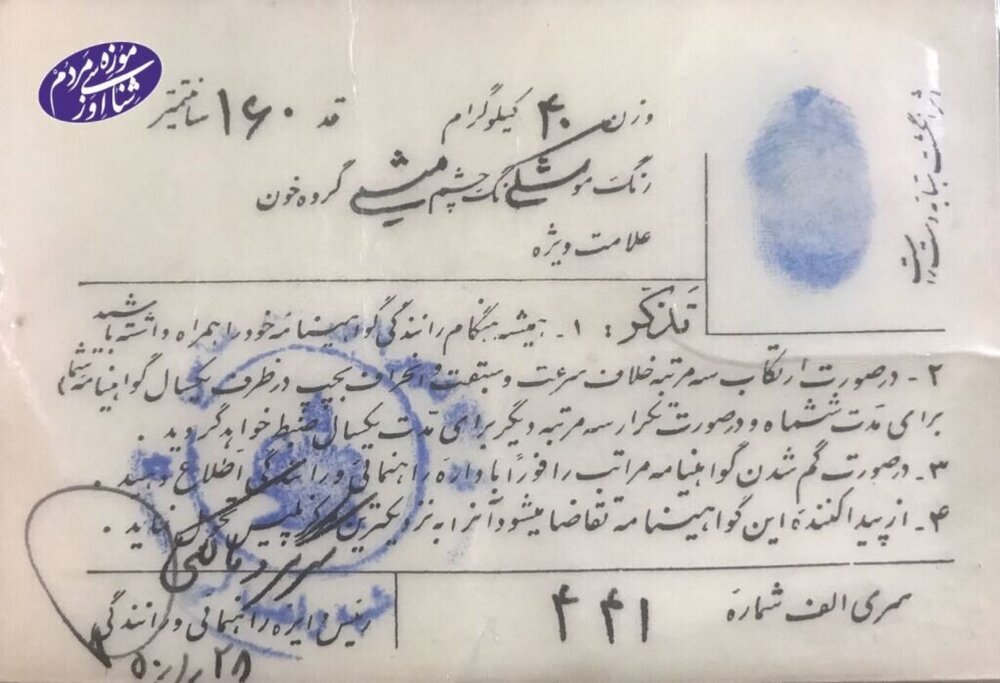 موزه مردم شناسی اوز
وزن ۴۰ کیلوگرام قد ۱۶۰ سانتیمتر
رنگ مو مشکی رنگ چشم میشی گروه خون
علامت ویژه
اثر انگشت سبابه دست راست
تذکر : ۱ - همیشه هنگام رانندگی گواهینامه خود را همراه داشته باشید
۲ - در صورت ارتکاب سه مرتبه خلاف سرعت و سبقت و انحراف بچپ در ظرف یکسال گواهینامه شما
برای مدت ششماه و در صورت تکرار سه مرتبه دیگر برای مدت یکسال ضبط خواهد گردید .
۳ - در صورت گم شدن گواهینامه مراتب را فوراً باداره راهنمائی و رانندگی اطلاع دهید .
۴ - از پیدا کننده این گواهینامه تقاضا میشود آنرا به نزدیکترین مرکز پلیس تحویل نماید .
سری الف شماره ۴۴۱
رئیس دایره راهنمائی و رانندگی
۵۰/۱/۲۸